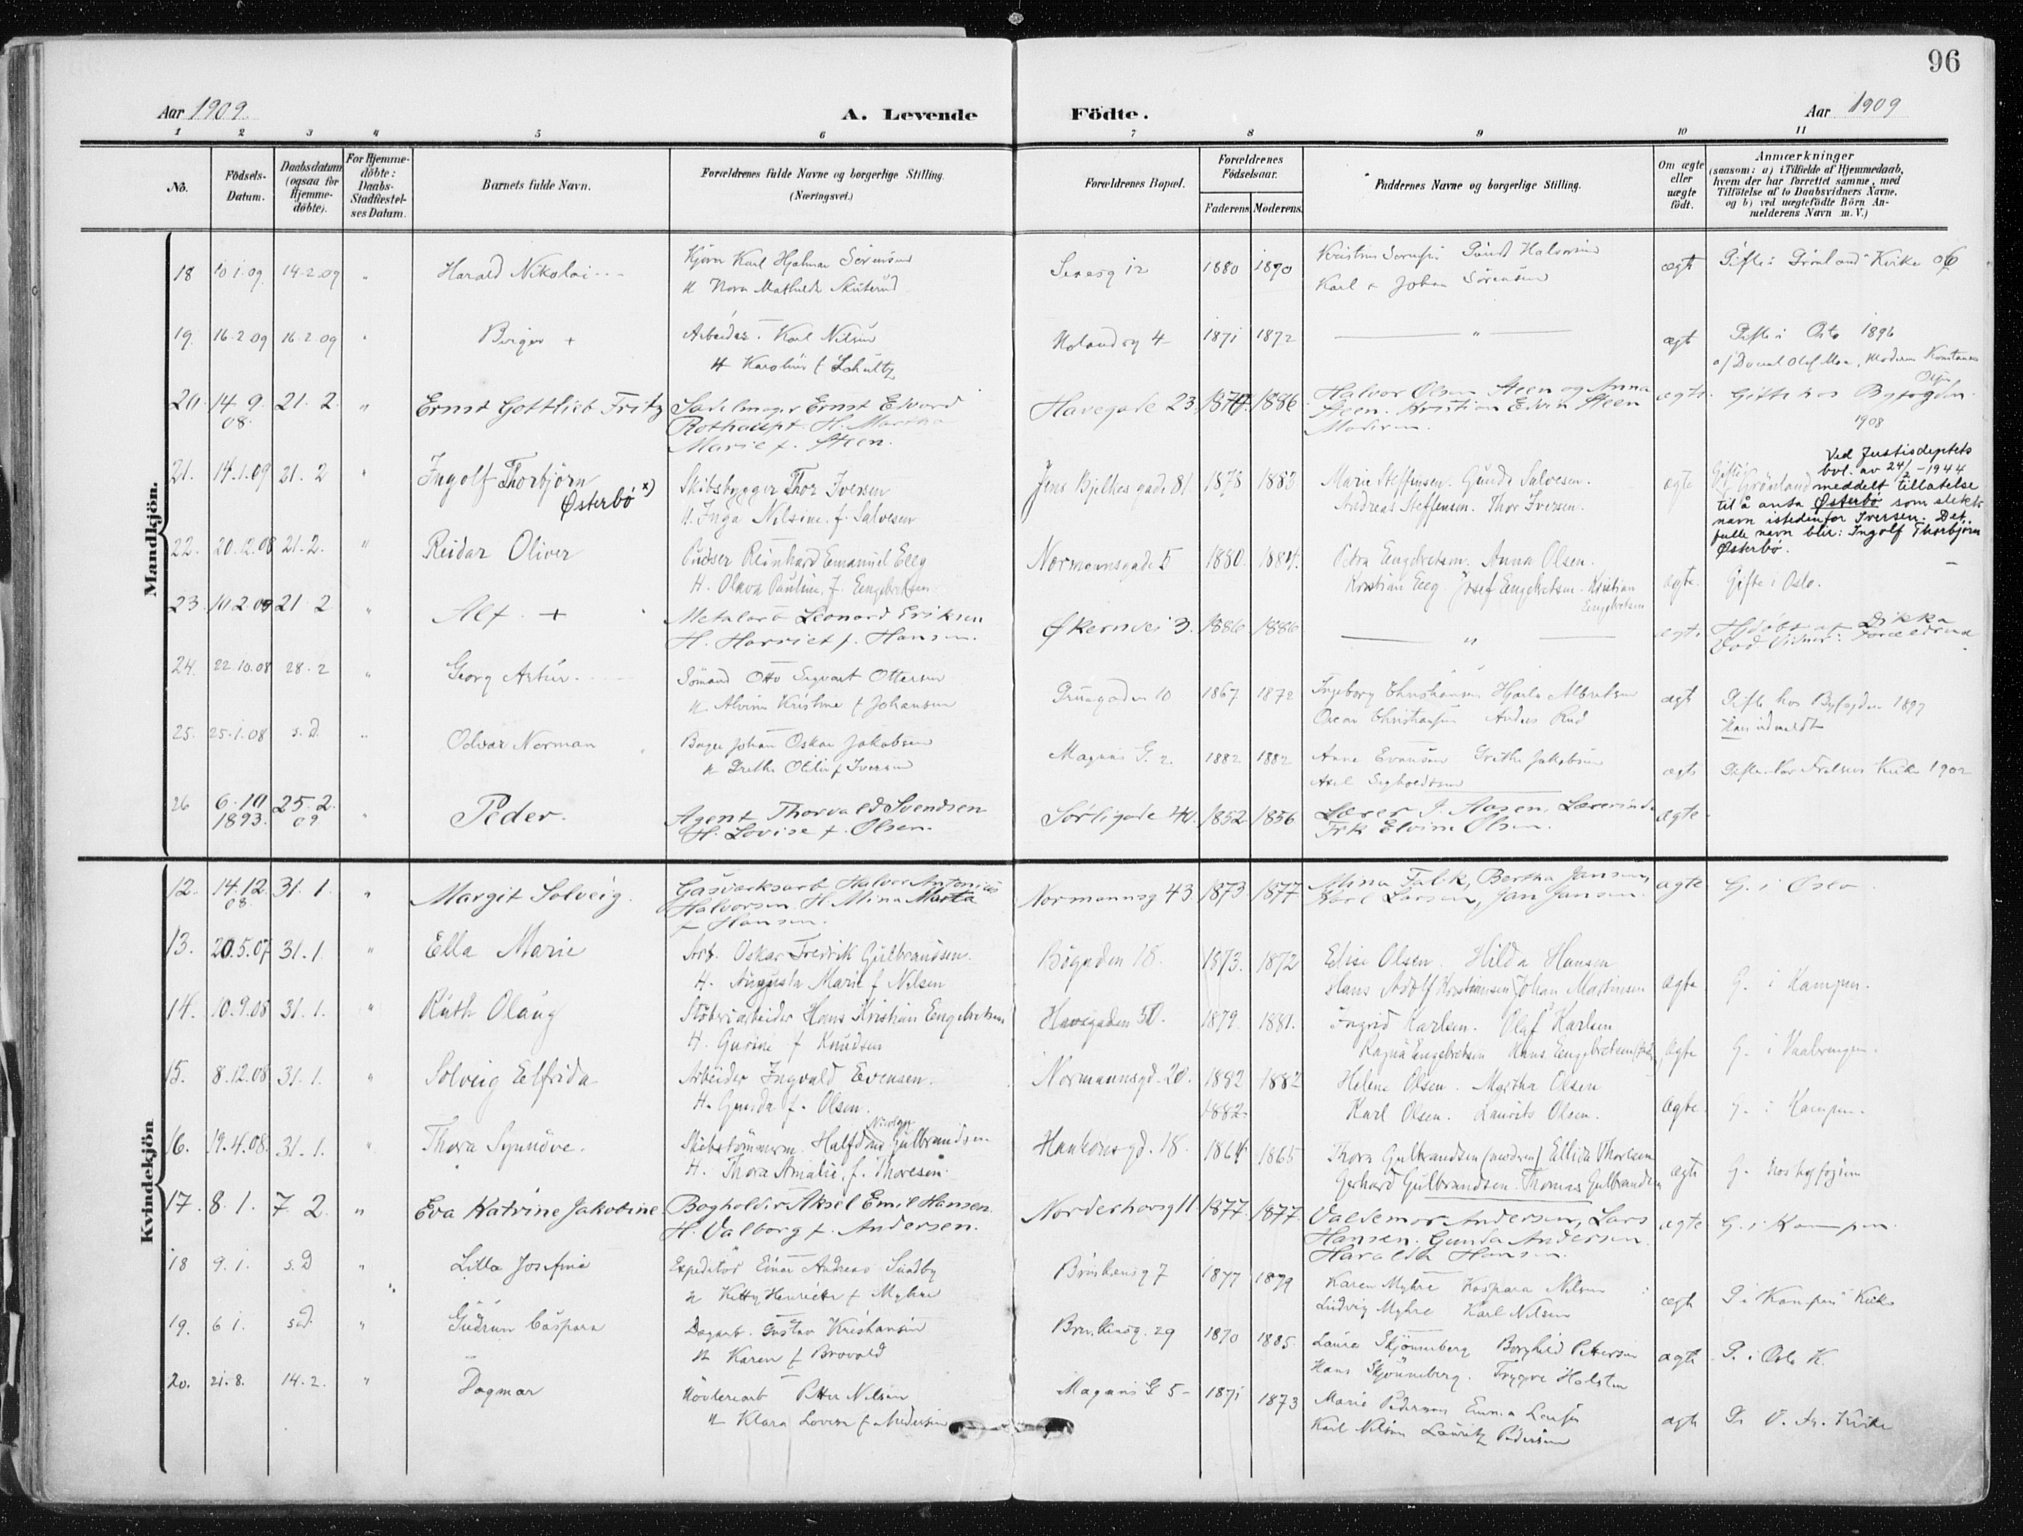 96
Aar 1909
A. Levende Födte.
Aar 1909
1 2 3 4 5 6 7 8 9 10 11
No.
Födsels-
Datum.
Daabsdatum
(ogsaa for
Hjemme-
döbte).
For Hjemme-
döbte:
Daabs-
Stadfæstel-
ses Datum.
Barnets fulde Navn.
Forældrenes fulde Navne og borgerlige Stilling.
(Næringsvei.)
Forældrenes Bopæl.
Forældrenes
Födselsaar.
Faderens. Moderens.
Faddernes Navne og borgerlige Stilling.
Om ægte
eller
uægte
født.
Anmærkninger
(saasom: a) i Tilfælde af Hjemmedaab,
hvem der har forrettet samme, med
Tilföielse af to Daabsvidners Navne,
og b) ved uægtefödte Börn An-
melderens Navn m. V.)
Mandkjön.
18 10.1.09. 14.2.09 " Harald Nikolai
Karl Hjalmar Sörensen
H Nora Mathilde Skuterud
12 1880 1890
Karl & Johan Sörensen
ægte Kirke 06
19. 16.2.09 16.2.09 " Birger +
Arbeider. Karl Nilsen
H Karoline f Schultz
4 1871 1872 — " — ægt
Gifte i Oslo 1896
20. 14.9.08. 21.2. " Ernst Gottlieb Fritz
Sadelmager Ernst Edvard
Rothaupt H. Martha
Marie f. Steen.
Havegade 23. 1886
Halvor Olsen Steen og Anna
Steen. Kristian Edvin Steen
Moderen.
ægte. Gifte hos Byfogden
1908
21. 14.1.09 21.2 " Ingolf Thorbjörn
Østerbö x)
Skibsbygger Thor Iversen
H. Inga Nilsine f. Salvesen
Jens Bjelkes gade 81 1878 1883
Marie Steffensen. Gunda Salvesen.
Andreas Steffensen. Thor Iversen.
ægte Gifte i Grönland
Ved Justisdeptets
bvl. av 24/2-1944
meddelt tillatelse
til å anta Østerbö som slekts
navn istedenfor Iversen. Det
fulle navn blir: Ingolf Thorbjörn
Østerbö.
22. 20.12.08 21.2. " Reidar Oliver
Reinhard Emanuel Eeg
H. Olava Pauline f. Engebretsen
Normannsgade 5 1880. 1884.
Petra Engebretsen. Anna Olsen.
Kristian Eeg Josef Engebretsen Kristian
Engebretsen
ægte. Gifte i Oslo.
23. 10.2.09 21.2 " Alf. +
Metalarb Leonard Eriksen
H. Harriet f. Hansen.
Økernvei 3. 1886 1886 — " — ægte
24. 22.10.08 28.2 " Georg Artur
Sömand Otto Sigvart Ottersen
H Alvine Kristine f Johansen
10 1867 1872
Ingeborg Christiansen Hjarla Albretsen
Oscar Christiansen Anders Rud
ægt Gifte hos Byfogden 1897
25. 25.1.08 s.d. " Odvar Norman
Bager Johan Oskar Jakobsen
H Grethe Otilie f Iversen
Magnus G. 2. 1882 1882
Anna Evensen Grethe Jakobsen
Axel
ægte Gifte Vor Frelsers Kirke 1902
26 6.10 1893. 25.2.09 " Peder.
Agent Thorvald Svendsen
H. Lovise f. Olsen.
Sörligade 40. 1852 1856
Lærer J. Aasen. Lærerinde
Frk Elvine Olsen.
ægte.
Kvindekjön
12. 14.12.08. 31.1. " Margit Solveig.
Gasværksarb Halvor Antonius
Halvorsen. H. Mina Marta
f Hansen.
Normannsg 43 1873 1877
Mina Falk, Bertha Jansen,
Karl Larsen, Jan Jansen.
ægte G. i Oslo
13. 20.5.07 31.1. " Ella Marie
Arb. Oskar Fredrik Gulbrandsen.
H. Augusta Marie f Nilsen
Bögaden 18. 1873. 1872
Edise Olsen. Hilda Hansen
Hans Adolf Kristiansen Johan Martinsen
ægte G. i Kampen.
14. 10.9.08 31.1. " Ruth Olaug
Støberiarbeider Hans Kristian Engebretsen
H. Gurine f Knudsen
Havegaden 50. 1879. 1881.
Ingrid Karlsen. Olaf Karlsen
Ragna Engebretsen Hans Engebretsen
ægte G. i Vaalerengen.
15. 8.12.08 31.1. " Solveig Elfrida
Arbeider Ingvald Evensen.
H. Gunda f. Olsen.
Normannsgd. 20. 1882 1882
1882.
Helene Olsen. Myrtha Olsen
Karl Olsen. Laurits Olsen.
ægte. G. i Kampen.
16. 19.4.08. 31.1. " Thora Synnöve.
Skibstömmerm. Halfdan Nicolay Gulbrandsen.
H. Thora Amalie f. Thoresen.
Haakonsgd. 18. 1864 1865
Thora Gulbrandsen (modren) Ellida Thorlsen
Gerhard Gulbrandsen. Thomas Gulbrandsen
ægte G. hos byfogden
17. 8.1. 7.2 " Eva Katrine Jakobine
Bogholder Aksel Emil Hansen
H. Valborg f. Andersen.
Norderhovsg 11 1877 1877
Valdemar Andersen, Lars
Hansen. Gunda Andersen.
Haralda Hansen.
ægte G. i Kampen.
18 9.1. s.D " Lilla Josefine
Expeditör Einar Andreas Sundby
H Ketty Henriette f Myhre
7 1877 1879
Karen Myhre Kaspara Nilsen
Ludvig Myhre Karl Nilsen
ægte G. i Kampen Kirke
19. 6.1. s.d. " Gudrun Caspara
Dagarb. Gustav Kristiansen
H Karen f Brovold
29 1870 1885.
Laura Skjönneberg Borghild Pettersen
Hans Skjönneberg. Trygve Holsten
ægte G. i Oslo K.
20. 21.8. 14.2. " Dagmar
Petter Nilsen
H Klara Lovise f Andersen
Magnus G 5 1871 1873
Marie Pedersen Emma
Karl Nilsen Lauritz Pedersen
ægte G. i V. Fr. Kirke